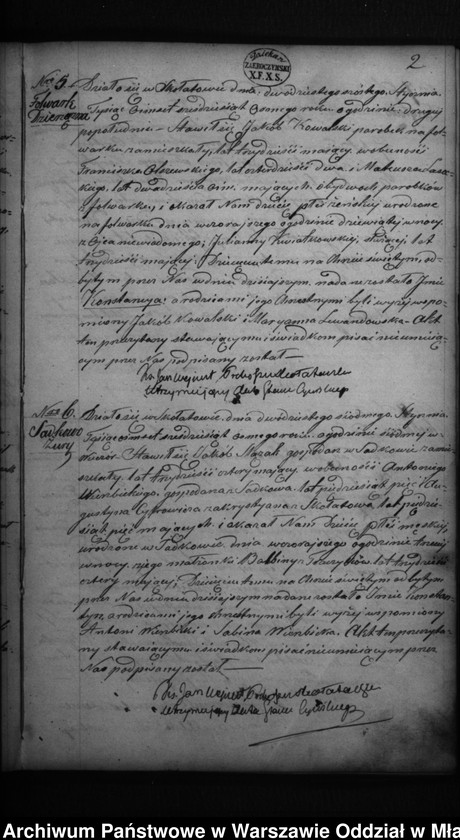 2
Dziekan
ZAKROCZYMSKI
X.F.X.S.
Nro 5.
Folwark
Działo się w Skołatowie dnia dwudziestego szóstego Stycznia
Tysiąc Ośmset sześćdziesiąt ósmego roku o godzinie drugiej
popołudniu – Stawił się Jakób Kowalski parobek na fol-
warku zamieszkały, lat trzydzieści mający, w obecności
Franciszka Olszewskiego, lat czterdzieści dwa i Mateusza
lat dwadzieścia ośm mających, obydwóch parobków
z folwarku, i okazał Nam dziecię płci żeńskiej urodzone
na folwarku dnia wczorajszego o godzinie dziewiątej w nocy
z Ojca niewiadomego i Julianny Kwiatkowskiej, służącej, lat
trzydzieści mającej. Dziecięciu temu na Chrzcie świętym, od-
bytym przez Nas w dniu dzisiejszym, nadane zostało Imie
Konstancya: a rodzicami jego Chrzestnymi byli wyżej wspo-
mniony Jakób Kowalski i Maryanna Lewandowska – Akt
ten przeczytany stawającemu i świadkom pisać nieumieją-
cym przez Nas podpisany został –
Ks. Jan Wejnert Proboszcz
utrzymujący Akta Stanu Cywilnego
Nro 6.
Działo się w Skołatowie, dnia dwudziestego siódmego Stycznia
Tysiąc ośmset sześćdziesiąt ósmego roku o godzinie siódmej w-
wieczór. Stawił się Jakób gospodarz w Sadkowie zamie-
szkały, lat trzydzieści cztery mający, w obecności Antoniego
Wierbickiego, gospodarza z Sadkowa lat pięćdziesiąt pięć i Au-
gustyna zakrystyana z Skołatowa, lat pięćdzie-
siąt pięć mających, i okazał Nam Dziecię płci męskiej,
urodzone w Sadkowie dnia wczorajszego o godzinie trzeciej
w nocy, z jego małżonki Balbiny z lat trzydzieści
cztery mającej. Dziecięciu temu na Chrzcie świętym odbytym
przez Nas w dniu dzisiejszym nadane zostało Imie
a rodzicami jego chrzestnymi byli wyżej wspomniony
Antoni Wierbicki i Sabina Wierbicka. Akt ten przeczyta-
ny stawającemu i świadkom pisać nieumiejącym przez
Nas podpisany został –
Ks. Jan Wejnert Proboszcz
utrzymujący Akta Stanu Cywilnego
Archiwum Państwowe w Warszawie Oddział w Mła